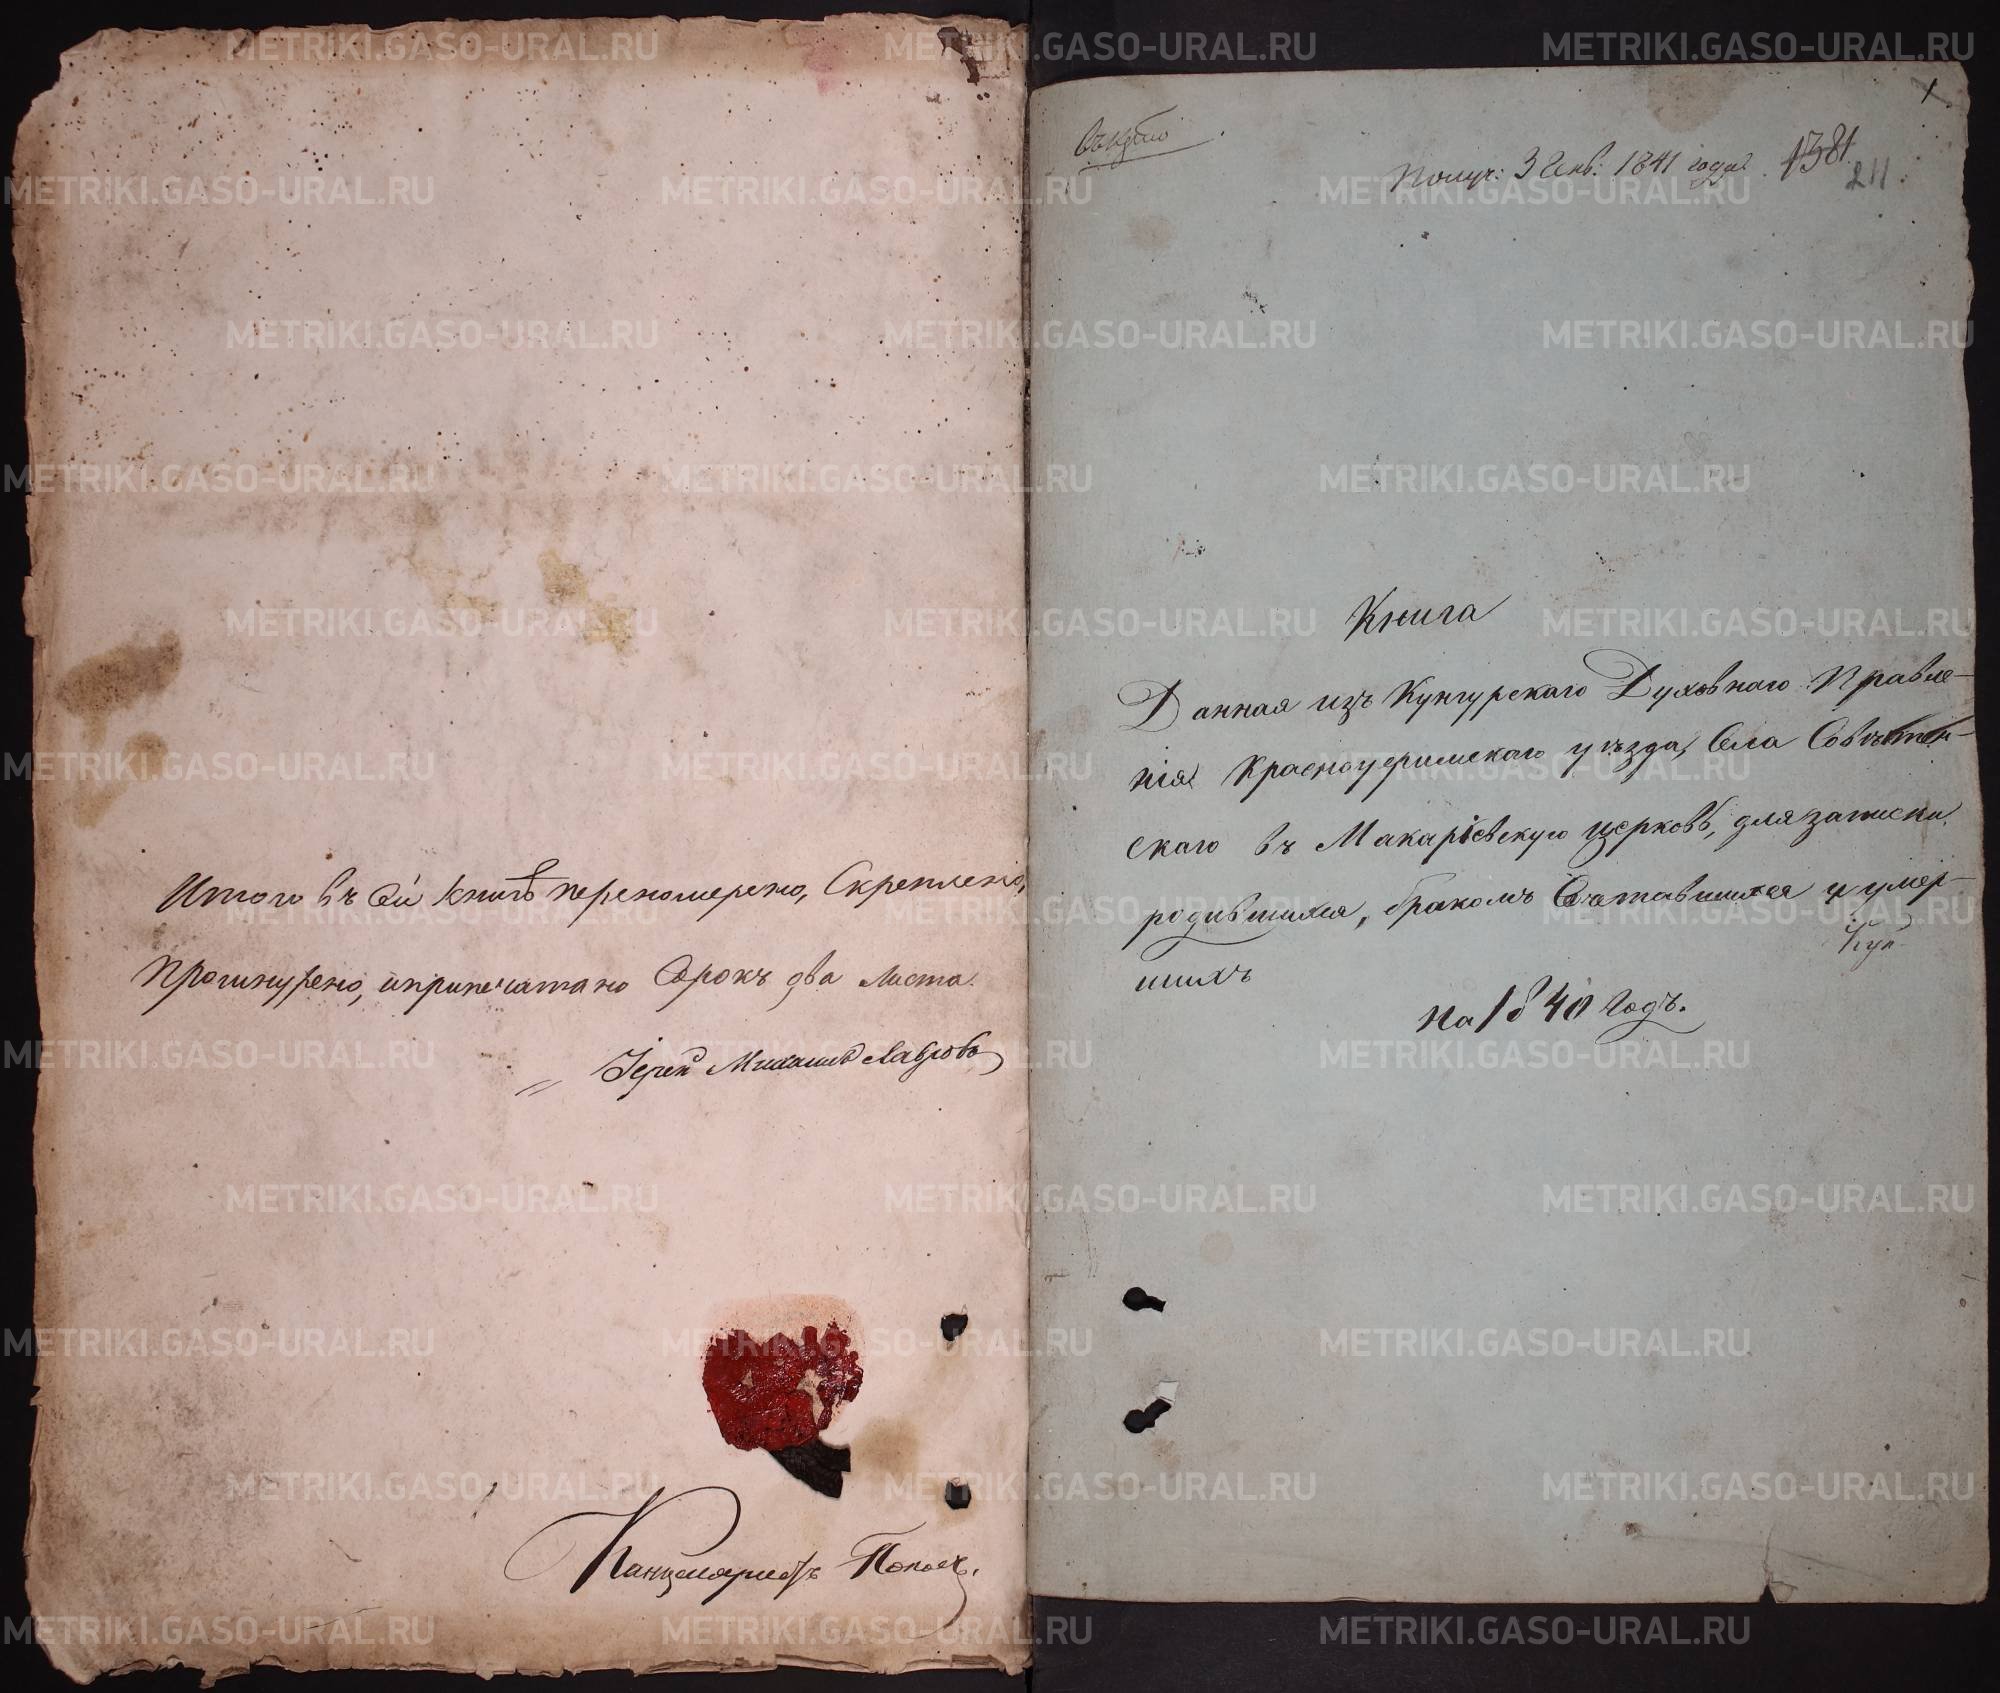 Итого въ сей книгѣ переномерено, Скреплено,
Прошнурено, иприпечатано Сорокъ два листа.
Іерей Михаилъ Лавровъ
Канцеляристъ Поповъ.
1
Получ: 3 Генв: 1841 года.
1381
211
Книга
Данная изъ Кунгурскаго Духовнаго Правле-
нія Красноуфимскаго уѣзда, Села Совѣтен-
скаго въ Макаріевскую церковь, для записки
родившихся, бракомъ Сочетавшихся и умер-
шихъ
на 1840 Годъ.
METRIKI.GASO-URAL.RU